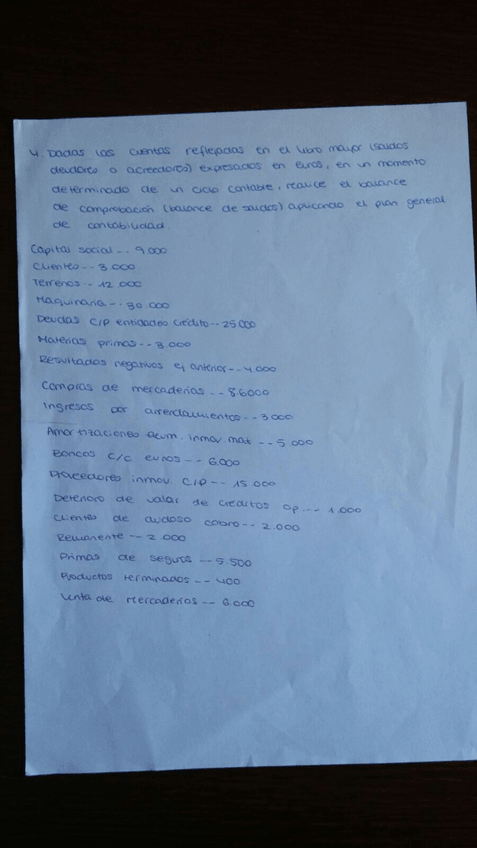 4. Dadas las cuentas reflejadas en el libro mayor (saldos
deudores o acreedores) expresados en euros, en un momento
determinado de un ciclo contable, realice el balance
de comprobación (balance de saldos) aplicando el plan general
de contabilidad.
Capital social -- 9.000
Clientes -- 3.000
Terrenos -- 12.000
Maquinaria -- 30.000
Deudas C/P entidades crédito -- 25.000
Materias primas -- 3.000
Resultados negativos ej anterior -- 4.000
Compras de mercaderías -- 8.6000
Ingresos por arrendamientos -- 3.000
Amortizaciones acum. inmov. mat -- 5.000
Bancos c/c euros -- 6.000
Proveedores inmov. C/P -- 15.000
Deterioro de valor de créditos op. -- 1.000
Clientes de dudoso cobro -- 2.000
Remanente -- 2.000
Primas de seguros -- 5.500
Productos terminados -- 400
Venta de mercaderías -- 6.000